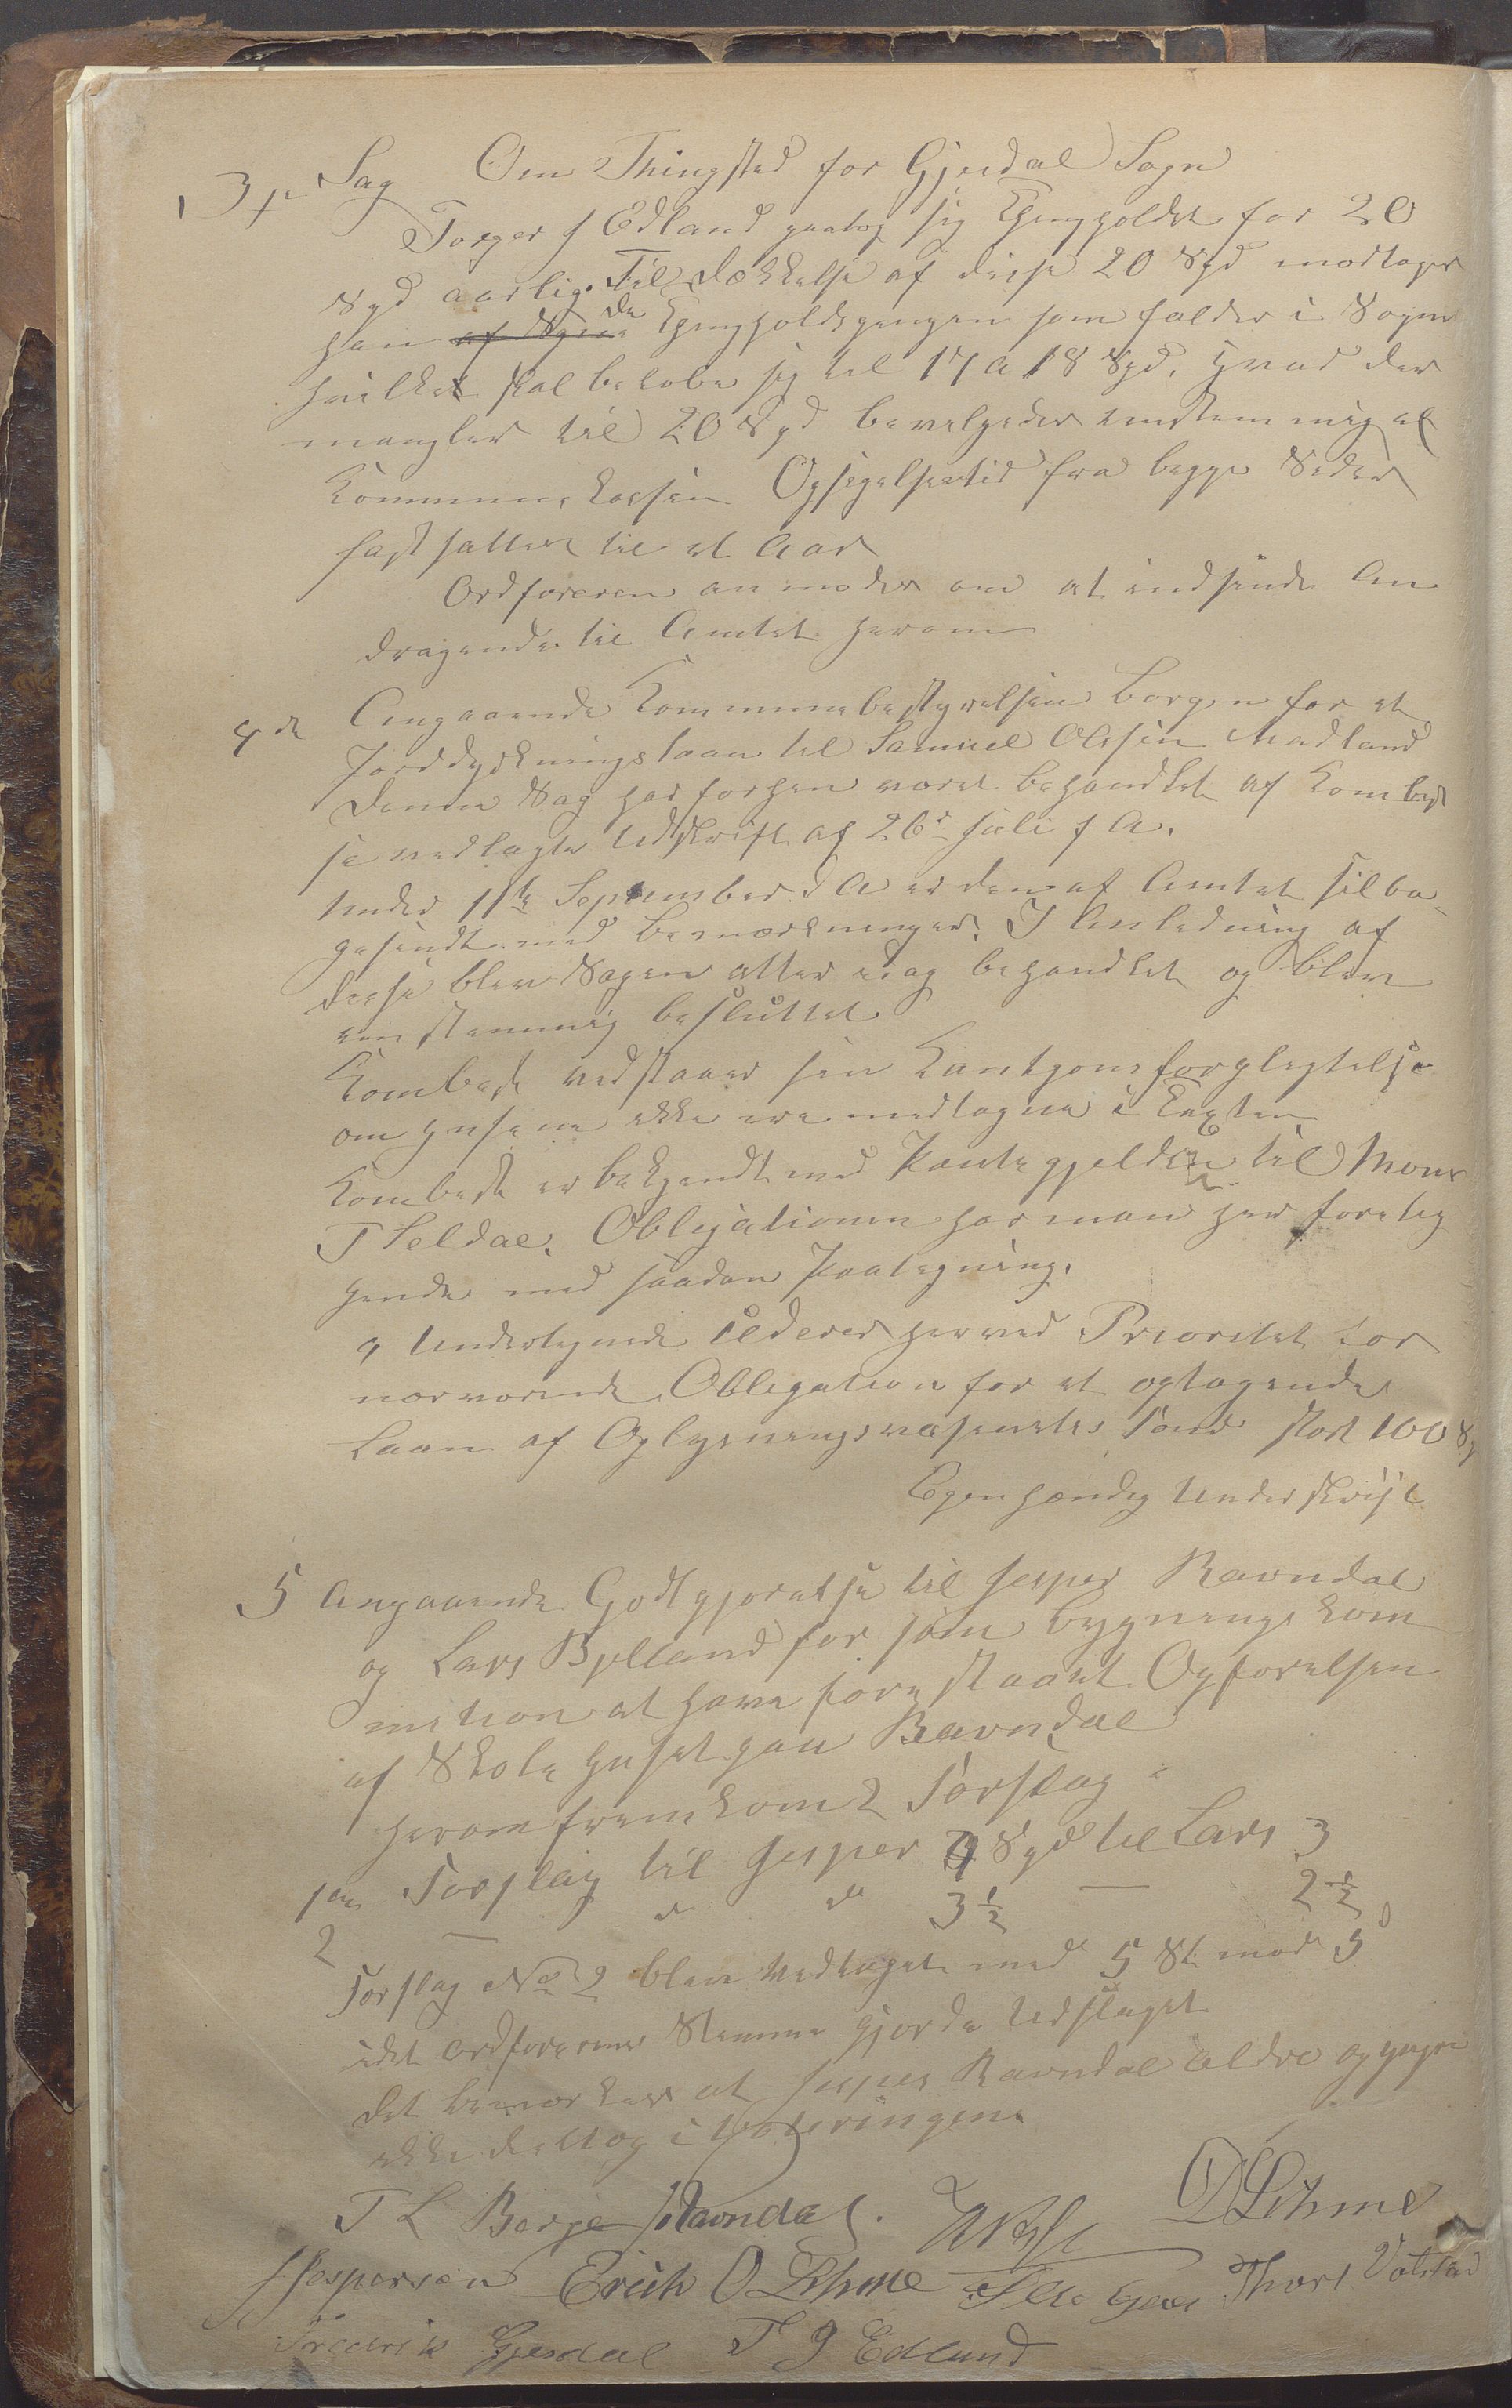 3die Sag Om Thingsted for Gjesdal Sogn
Torger J Edland paatog sig Thingholdet for 20
Spd aarlig. Til Dækkelse af disse 20 Spd modtager
han af Sogne de Thingholdspengen som falder i Sogne
hvilket skal beløbe sig til 17 a 18 Spd, hvad der
mangler til 20 Spd bevelgedes enstemmig af
Kommunekassen Opsigelsestid fra begge Sider
fastsattes til et Aar
Ordføreren anmodes om at indsende An
dragende til Amtet herom
4de Angaaende Kommunebestyrelsen Borgen for et
Jorddyrkningslaan til Samuel Olsen Madland
Denne Sag har forhen været behandlet af Kombest
se vedlagte Udskrift af 26de Juli f A.
Under 11te September d A er den af Amtet tilba-
gesendt med Bemærkninger. I Anledning af
disse blev Sagen atter idag behandlet og blev
enstemmig besluttet
Kombest vedstaaer sin Kautionsforpligtelse
om Husene ikke ere medtagne i Taxten
Kombest er bekjendt med Pantegjelden til Mons
T Seldal. Obligationen har man her forelig
gende med saadan Paategning.
" Undertegnede viger herved Prioritet for
nærværende Obligation for et optagende
Laan af Oplysningsvæsenets Fond stort 100 Sp
Egenhændig Underskrift
5 Angaaende Godtgjørelse til Jesper Ravndal
og Lars Bylland for som Bygnings kom
mition at have forestaaet Opførelsen
af Skolehuset paa Ravndal
herom fremkom 2 Forslag
1ste Forslag til Jesper 4 Spd til Lars 3
2 — d d 3 1/2 — 2 1/2
Forslag No 2 blev vedtaget med 5 St mod 5
idet Ordførerens Stemme gjorde Udslaget
Det bemærkes at Jesper Ravndal ældre og yngre
ikke deltog i Voteringen
T L Berge J Ravndal. O Lihme
J Jespersen Erich O Lihme Thore Votstad
Fredrik Gjesdal T J Edland